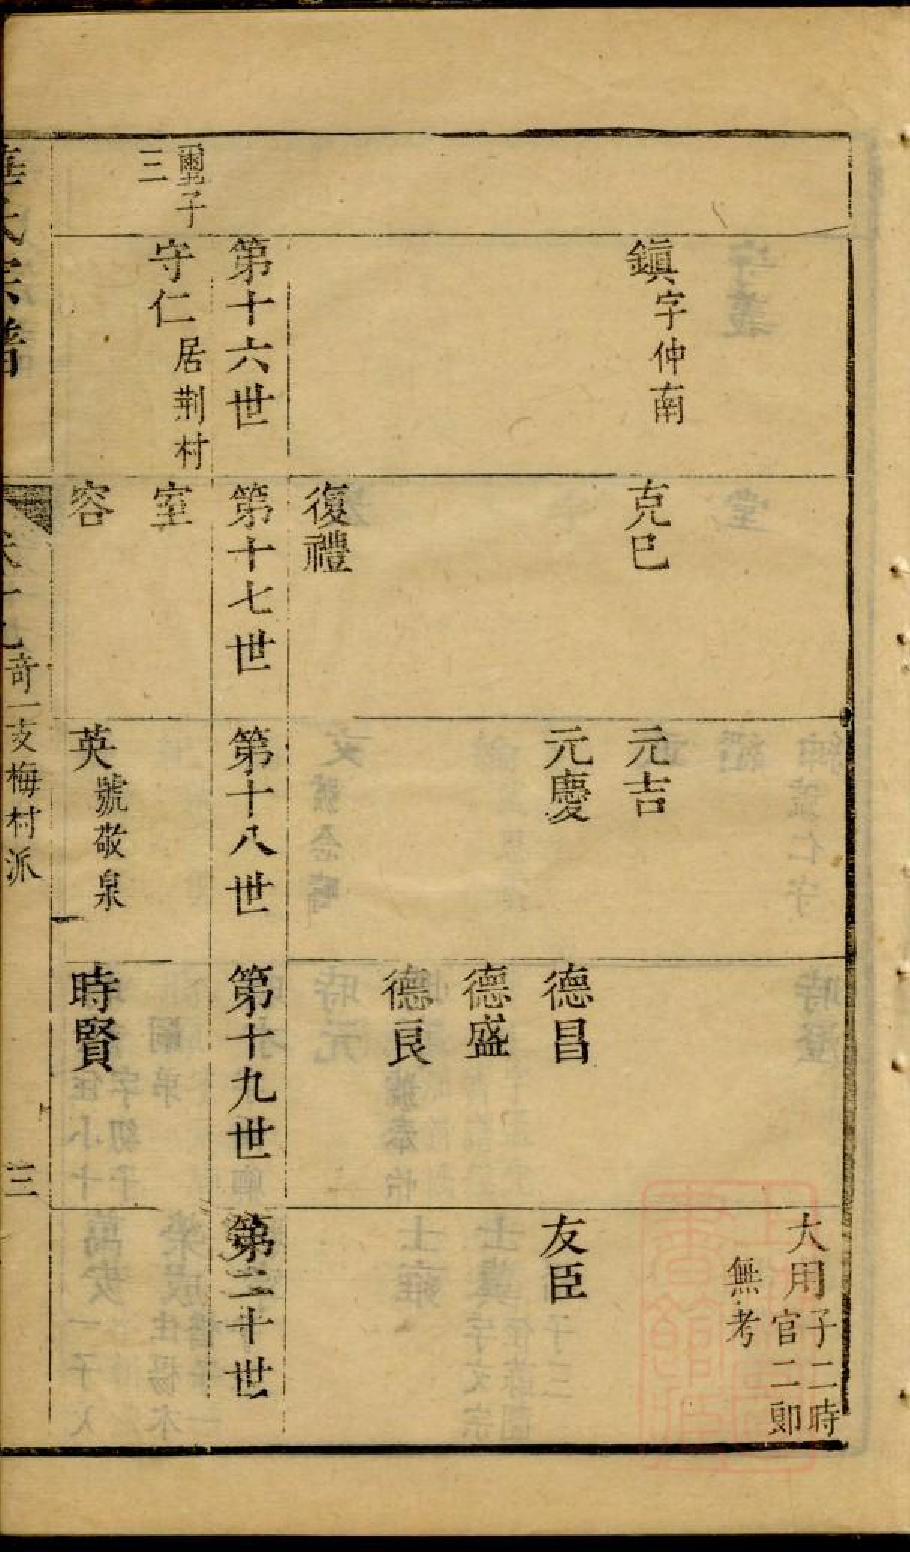 大用子二時
官二郎
無考
鎮字仲南
克巳
元吉
元慶
德昌
友臣
德盛
德良
復禮
第十六世
第十七世
第十八世
第十九世
第二十世
璽子
三
守仁居荆村
室
容
英號敬泉
時賢
氏宗譜
奇一支梅村派
三